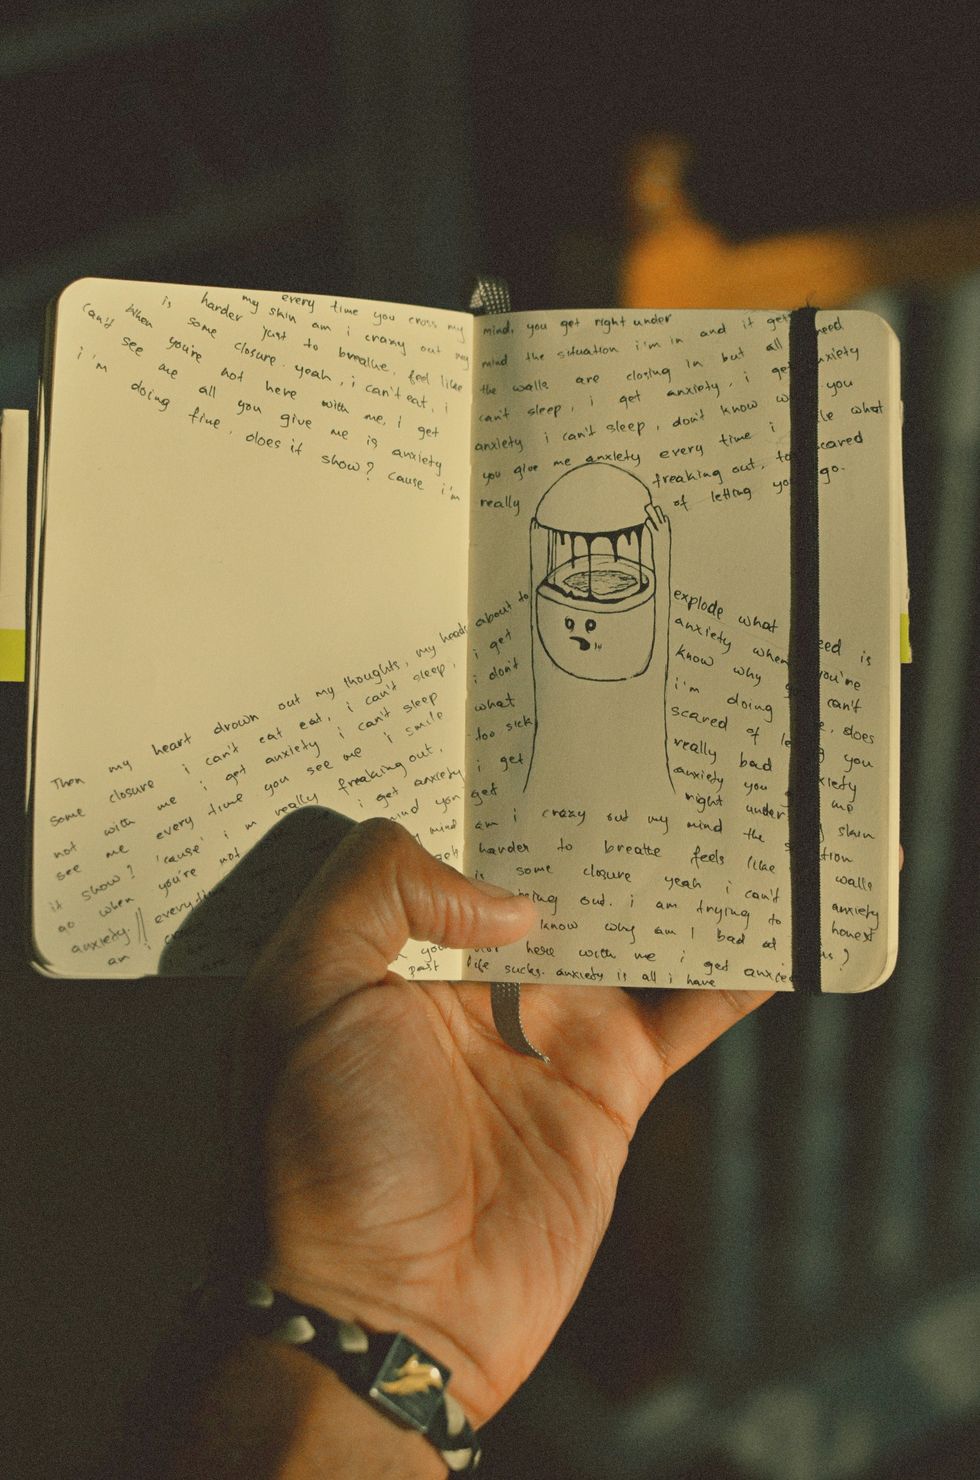 every time you cross my
my skin am i crazy out my
is harder just to breathe. feel like
can't some closure. yeah, i can't eat, i
When you're not here with me, i get
see me all you give me is anxiety
i'm doing fine, does it show? cause i'm
Then my heart drown out my thoughts, my heads
some closure i can't eat eat, i can't sleep,
not with me i get anxiety i can't sleep
see me every time you see me i smile
it show? 'cause' i'm really freaking out,
go when you're not i get anxiety
anxiety. // mind you
an i
you
past
mind, you get right under
mind the situation i'm in and it gets need
the walls are closing in but all anxiety
can't sleep, i get anxiety, i get you
anxiety i can't sleep, don't know what
you give me anxiety every time i scared
really freaking out, of letting you go.
about to explode what
i get anxiety when is
i don't know why can't
what i'm doing does
too sick scared of you
i get really bad
get anxiety you me
right under skin
am i crazy out my mind the
harder to breathe feels like walls
is some closure yeah i can't anxiety
out. i am trying to honest
know why am I bad at ?
here with me i get
life sucks. anxiety is all i have